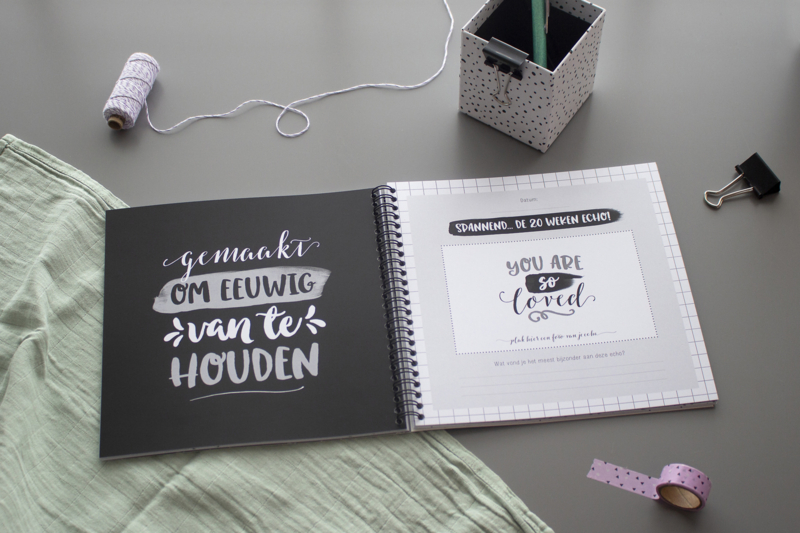 gemaakt
OM EEUWIG
van te
HOUDEN
Datum:
SPANNEND... DE 20 WEKEN ECHO!
YOU ARE
so
loved
plak hier een foto van je echo
Wat vond je het meest bijzonder aan deze echo?